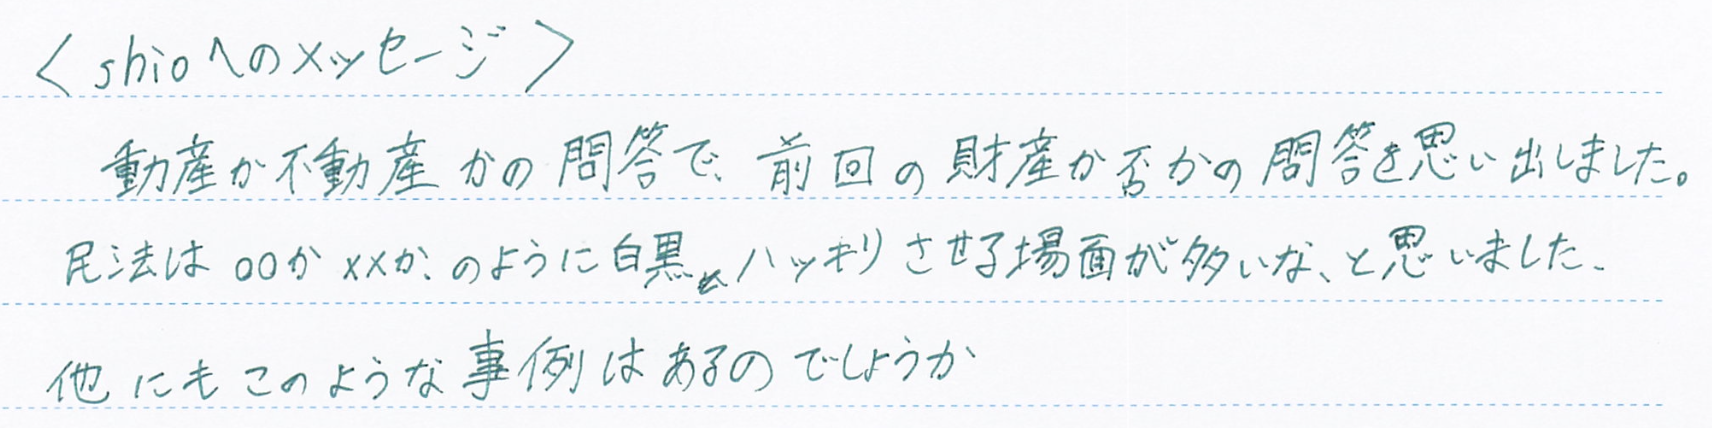 <shioへのメッセージ>
動産か不動産かの問答で、前回の財産か否かの問答を思い出しました。
民法は〇〇か××か、のように白黒ハッキリさせる場面が多いな、と思いました、
他にもこのような事例はあるのでしょうか